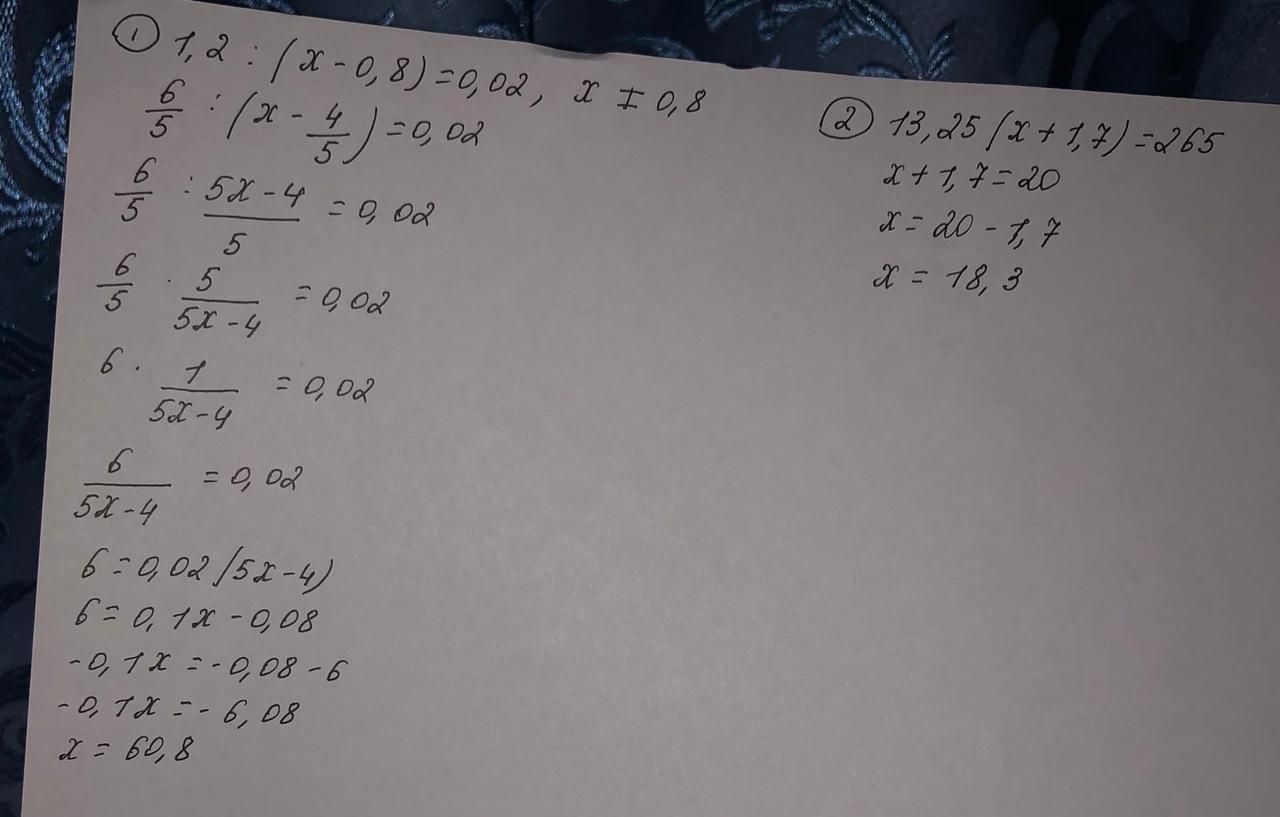 ① 1,2 : (x - 0,8) = 0,02, x ≠ 0,8
6/5 : (x - 4/5) = 0,02
6/5 : (5x - 4)/5 = 0,02
6/5 · 5/(5x - 4) = 0,02
6 · 1/(5x - 4) = 0,02
6/(5x - 4) = 0,02
6 = 0,02 (5x - 4)
6 = 0,1x - 0,08
-0,1x = -0,08 - 6
-0,1x = -6,08
x = 60,8
② 13,25 (x + 1,7) = 265
x + 1,7 = 20
x = 20 - 1,7
x = 18,3